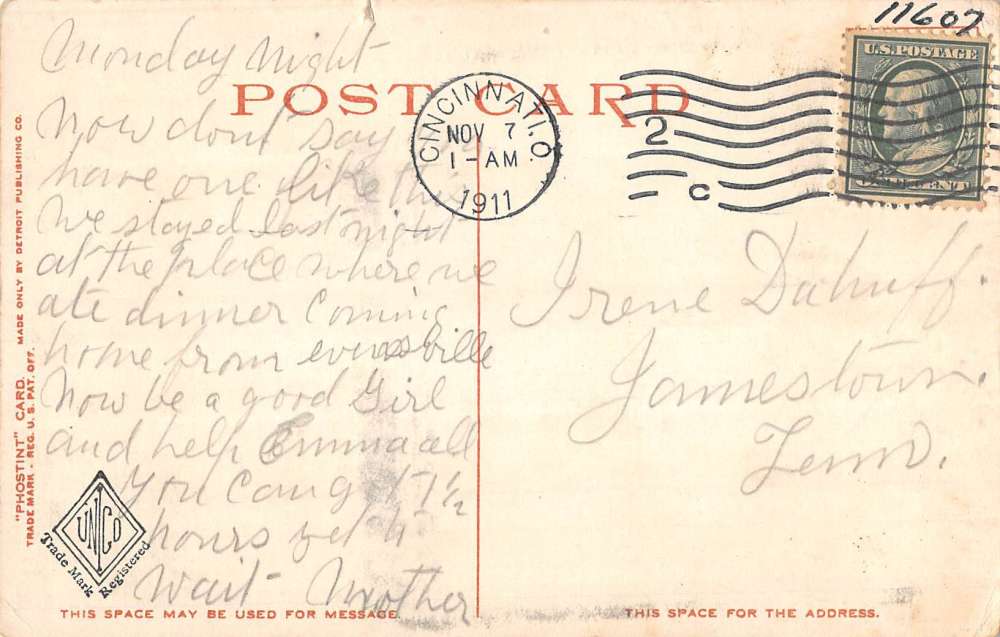 11607
Monday Night
POST CARD
U.S. POSTAGE
CINCINNATI, O.
NOV 7
1-AM
1911
2
C
Now dont say
have one like this
We stayed last night
at the place where we
ate dinner coming
home from evensville
Now be a good Girl
and help Emma all
You can
17½
hours yet
wait Mother
Irene Dahuff.
Jamestown.
Tenn.
"PHOSTINT" CARD. MADE ONLY BY DETROIT PUBLISHING CO.
TRADE MARK - REG. U. S. PAT. OFF.
UNCO
Trade Mark Registered
THIS SPACE MAY BE USED FOR MESSAGE.
THIS SPACE FOR THE ADDRESS.